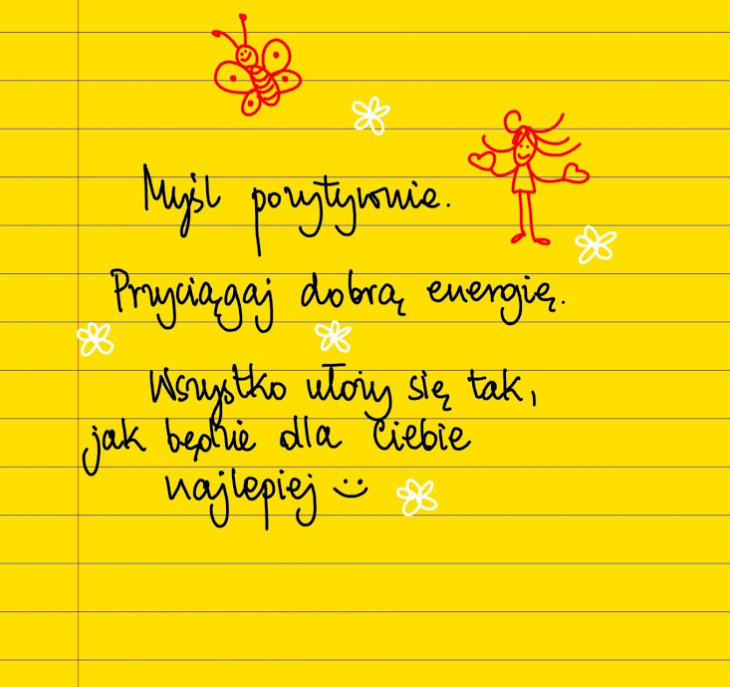 Myśl pozytywnie.
Przyciągaj dobrą energię.
Wszystko ułoży się tak,
jak będzie dla Ciebie
najlepiej :)